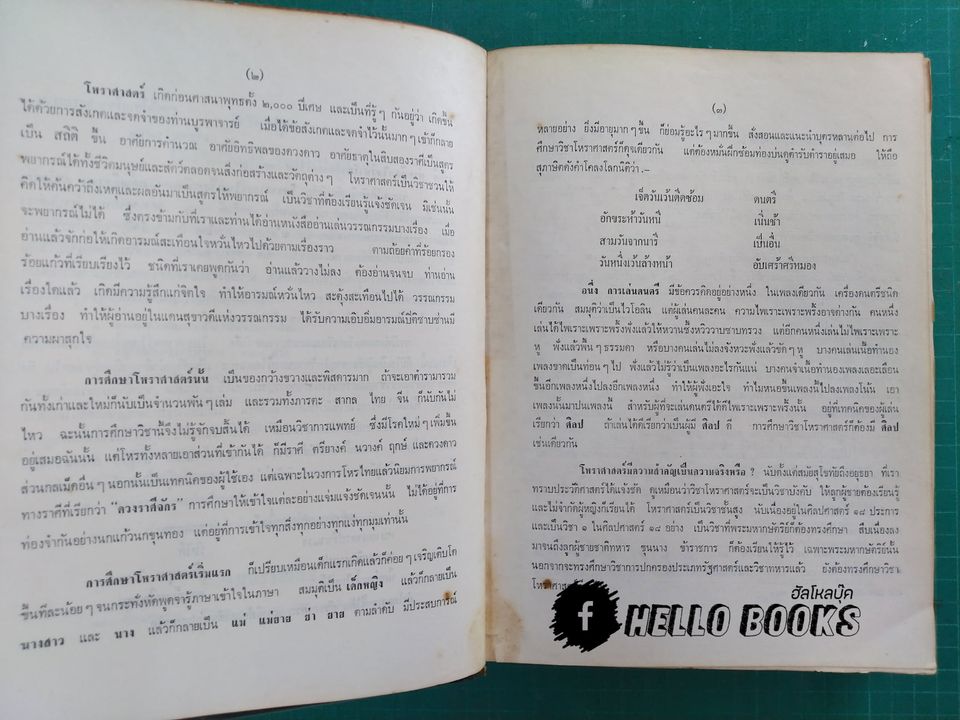 (๒)
โหราศาสตร์ เกิดก่อนศาสนาพุทธตั้ง ๒,๐๐๐ ปีเศษ และเป็นที่รู้ๆ กันอยู่ว่า เกิดขึ้น
ได้ด้วยการสังเกตและจดจำของท่านบูรพาจารย์ เมื่อได้ข้อสังเกตและจดจำไว้นั้นมากๆ เข้าก็กลาย
เป็น สถิติ ขึ้น อาศัยการคำนวณ อาศัยอิทธิพลของดวงดาว อาศัยธาตุในสิบสองราศีเป็นสูตร
พยากรณ์ได้ทั้งชีวิตมนุษย์และสัตว์ตลอดจนสิ่งก่อสร้างและวัตถุต่างๆ โหราศาสตร์เป็นวิชาชวนให้
คิดให้ค้นคว้าถึงเหตุและผลอันมาเป็นสูตรให้พยากรณ์ เป็นวิชาที่ต้องเรียนรู้แจ้งชัดเจน มิเช่นนั้น
จะพยากรณ์ไม่ได้ ซึ่งตรงข้ามกับที่เราและท่านได้อ่านหนังสืออ่านเล่นวรรณกรรมบางเรื่อง เมื่อ
อ่านแล้วจักก่อให้เกิดอารมณ์สะเทือนใจหวั่นไหวไปด้วยตามเรื่องราว ตามถ้อยคำที่ร้อยกรอง
ร้อยแก้วที่เรียบเรียงไว้ ชนิดที่เราเคยพูดกันว่า อ่านแล้ววางไม่ลง ต้องอ่านจนจบ ท่านอ่าน
เรื่องใดแล้ว เกิดมีความรู้สึกแก่จิตใจ ทำให้อารมณ์หวั่นไหว สะดุ้งสะเทือนไปได้ วรรณกรรม
บางเรื่อง ทำให้ผู้อ่านอยู่ในแดนสุขาวดีแห่งวรรณกรรม ได้รับความเอิบอิ่มอารมณ์ปิติซาบซ่านมี
ความผาสุกใจ
การศึกษาโหราศาสตร์นั้น เป็นของกว้างขวางและพิสดารมาก ถ้าจะเอาตำรามารวม
กันทั้งเก่าและใหม่ก็นับเป็นจำนวนพันๆ เล่ม และรวมทั้งภารตะ สากล ไทย จีน ก็นับกันไม่
ไหว ฉะนั้นการศึกษาวิชานี้จึงไม่รู้จักจบสิ้นได้ เหมือนวิชาการแพทย์ ซึ่งมีโรคใหม่ๆ เพิ่มขึ้น
อยู่เสมอฉันนั้น แต่โหรทั้งหลายเอาส่วนที่เข้ากันได้ ก็มีราศี ตรียางค์ นวางค์ ฤกษ์ และดวงดาว
ส่วนกลเม็ดอื่นๆ นอกนั้นเป็นเทคนิคของผู้ใช้เอง แต่เฉพาะในวงการโหรไทยแล้วนิยมการพยากรณ์
ทางราศีที่เรียกว่า “ดวงราศีจักร” การศึกษาให้เข้าใจแต่ละอย่างแจ่มแจ้งชัดเจนนั้น ไม่ได้อยู่ที่การ
ท่องจำกันอย่างนกแก้วนกขุนทอง แต่อยู่ที่การเข้าใจทุกสิ่งทุกอย่างทุกแง่ทุกมุมเท่านั้น
การศึกษาโหราศาสตร์เริ่มแรก ก็เปรียบเหมือนเด็กแรกเกิดแล้วก็ค่อยๆ เจริญเติบโต
ขึ้นทีละน้อยๆ จนกระทั่งหัดพูดจารู้ภาษาเข้าใจในภาษา สมมุติเป็น เด็กหญิง แล้วก็กลายเป็น
นางสาว และ นาง แล้วก็กลายเป็น แม่ แม่ยาย ย่า ยาย ตามลำดับ มีประสบการณ์
(๓)
หลายอย่าง ยิ่งมีอายุมากๆ ขึ้น ก็ย่อมรู้อะไรๆ มากขึ้น สั่งสอนและแนะนำบุตรหลานต่อไป การ
ศึกษาวิชาโหราศาสตร์ก็ดุจเดียวกัน แต่ต้องหมั่นฝึกซ้อมท่องบ่นดูตำรับตำราอยู่เสมอ ให้ถือ
สุภาษิตดังคำโคลงโลกนิติว่า.-
เจ็ดวันเว้นดีดซ้อม ดนตรี
อักขระห้าวันหนี เนิ่นช้า
สามวันจากนารี เป็นอื่น
วันหนึ่งเว้นล้างหน้า อับเศร้าศรีหมอง
อนึ่ง การเล่นดนตรี มีข้อควรคิดอยู่อย่างหนึ่ง ในเพลงเดียวกัน เครื่องดนตรีชนิด
เดียวกัน สมมุติว่าเป็นไวโอลิน แต่ผู้เล่นคนละคน ความไพเราะเพราะพริ้งอาจต่างกัน คนหนึ่ง
เล่นได้ไพเราะเพราะพริ้งฟังแล้วให้หวานซึ้งหวิววาบซาบทรวง แต่อีกคนหนึ่งเล่นไม่ไพเราะเพราะ
หู ฟังแล้วพื้นๆ ธรรมดา หรือบางคนเล่นไม่ลงจังหวะฟังแล้วขัดๆ หู บางคนเล่นเนื้อทำนอง
เพลงขาดเป็นท่อนๆ ไป ฟังแล้วไม่รู้ว่าเป็นเพลงอะไรกันแน่ บางคนจำเนื้อทำนองเพลงเลอะเลือน
ขึ้นอีกเพลงหนึ่งไปลงอีกเพลงหนึ่ง ทำให้ผู้ฟังเอะใจ ทำไมหนอขึ้นเพลงนี้ไปลงเพลงโน้น เอา
เพลงนั้นมาปนเพลงนี้ สำหรับผู้ที่จะเล่นดนตรีได้ดีไพเราะเพราะพริ้งนั้น อยู่ที่เทคนิคของผู้เล่น
เรียกว่า ศิลป ถ้าเล่นได้ดีเรียกว่าเป็นผู้มี ศิลป ดี การศึกษาวิชาโหราศาสตร์ก็ต้องมี ศิลป
เช่นเดียวกัน
โหราศาสตร์มีความสำคัญเป็นความจริงหรือ ? นับตั้งแต่สมัยสุโขทัยถึงอยุธยา ที่เรา
ทราบประวัติศาสตร์ได้แจ้งชัด ดูเหมือนว่าวิชาโหราศาสตร์จะเป็นวิชาบังคับ ให้ลูกผู้ชายต้องเรียนรู้
และไม่จำกัดผู้หญิงก็เรียนได้ โหราศาสตร์เป็นวิชาชั้นสูง นับเนื่องอยู่ในศิลปศาสตร์ ๑๘ ประการ
และเป็นวิชา ๑ ในศิลปศาสตร์ ๑๘ อย่าง เป็นวิชาที่พระมหากษัตริย์ก็ต้องทรงศึกษา สืบเนื่องลง
มาจนถึงลูกผู้ชายชาติทหาร ขุนนาง ข้าราชการ ก็ต้องเรียนให้รู้ไว้ เฉพาะพระมหากษัตริย์นั้น
นอกจากจะทรงศึกษาวิชาการปกครองประเภทรัฐศาสตร์และวิชาทหารแล้ว ยังต้องทรงศึกษาวิชา
โหราศาส
ฮัลโหลบุ๊ค
f HELLO BOOKS